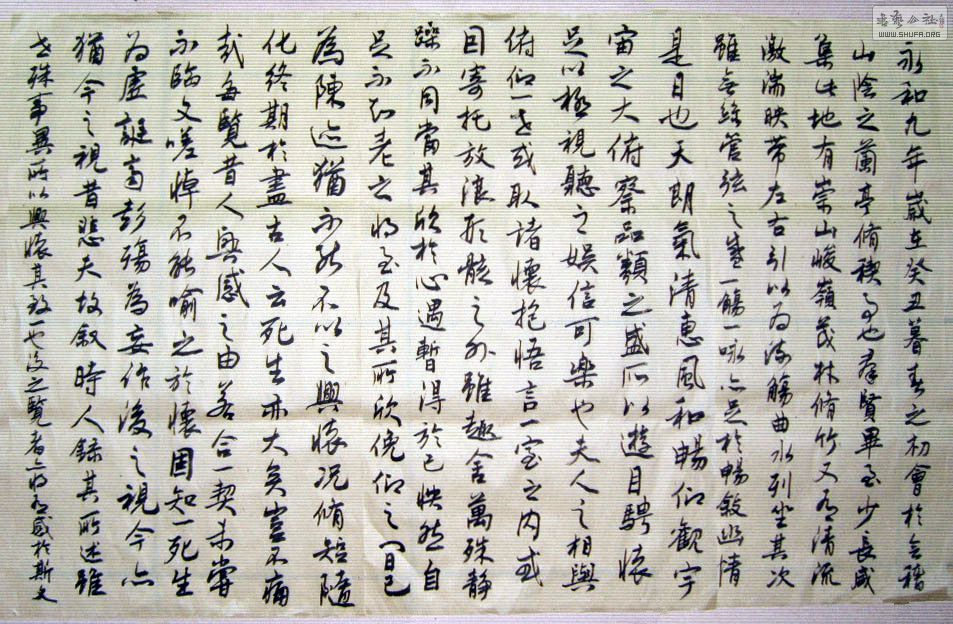 書藝公社
WWW.SHUFA.ORG
永和九年歲在癸丑暮春之初會於會稽
山陰之蘭亭脩稧事也羣賢畢至少長咸
集此地有崇山峻嶺茂林脩竹又有清流
激湍映帶左右引以為流觴曲水列坐其次
雖無絲管弦之盛一觴一咏亦足於暢敘幽情
是日也天朗氣清惠風和暢仰觀宇
宙之大俯察品類之盛所以遊目騁懷
足以極視聽之娛信可樂也夫人之相與
俯仰一世或取諸懷抱悟言一室之內或
因寄托放浪形骸之外雖趣舍萬殊静
躁不同當其欣於心遇暫得於己怏然自
足不知老之將至及其所欣俛仰之間已
為陳迹猶不能不以之興懷況脩短隨
化終期於盡古人云死生亦大矣豈不痛
哉每覽昔人興感之由若合一契未嘗
不臨文嗟悼不能喻之於懷固知一死生
為虛誕齊彭殤為妄作後之視今亦
猶今之視昔悲夫故敘時人錄其所述雖
世殊事異所以興懷其致一也後之覽者亦將有感於斯文